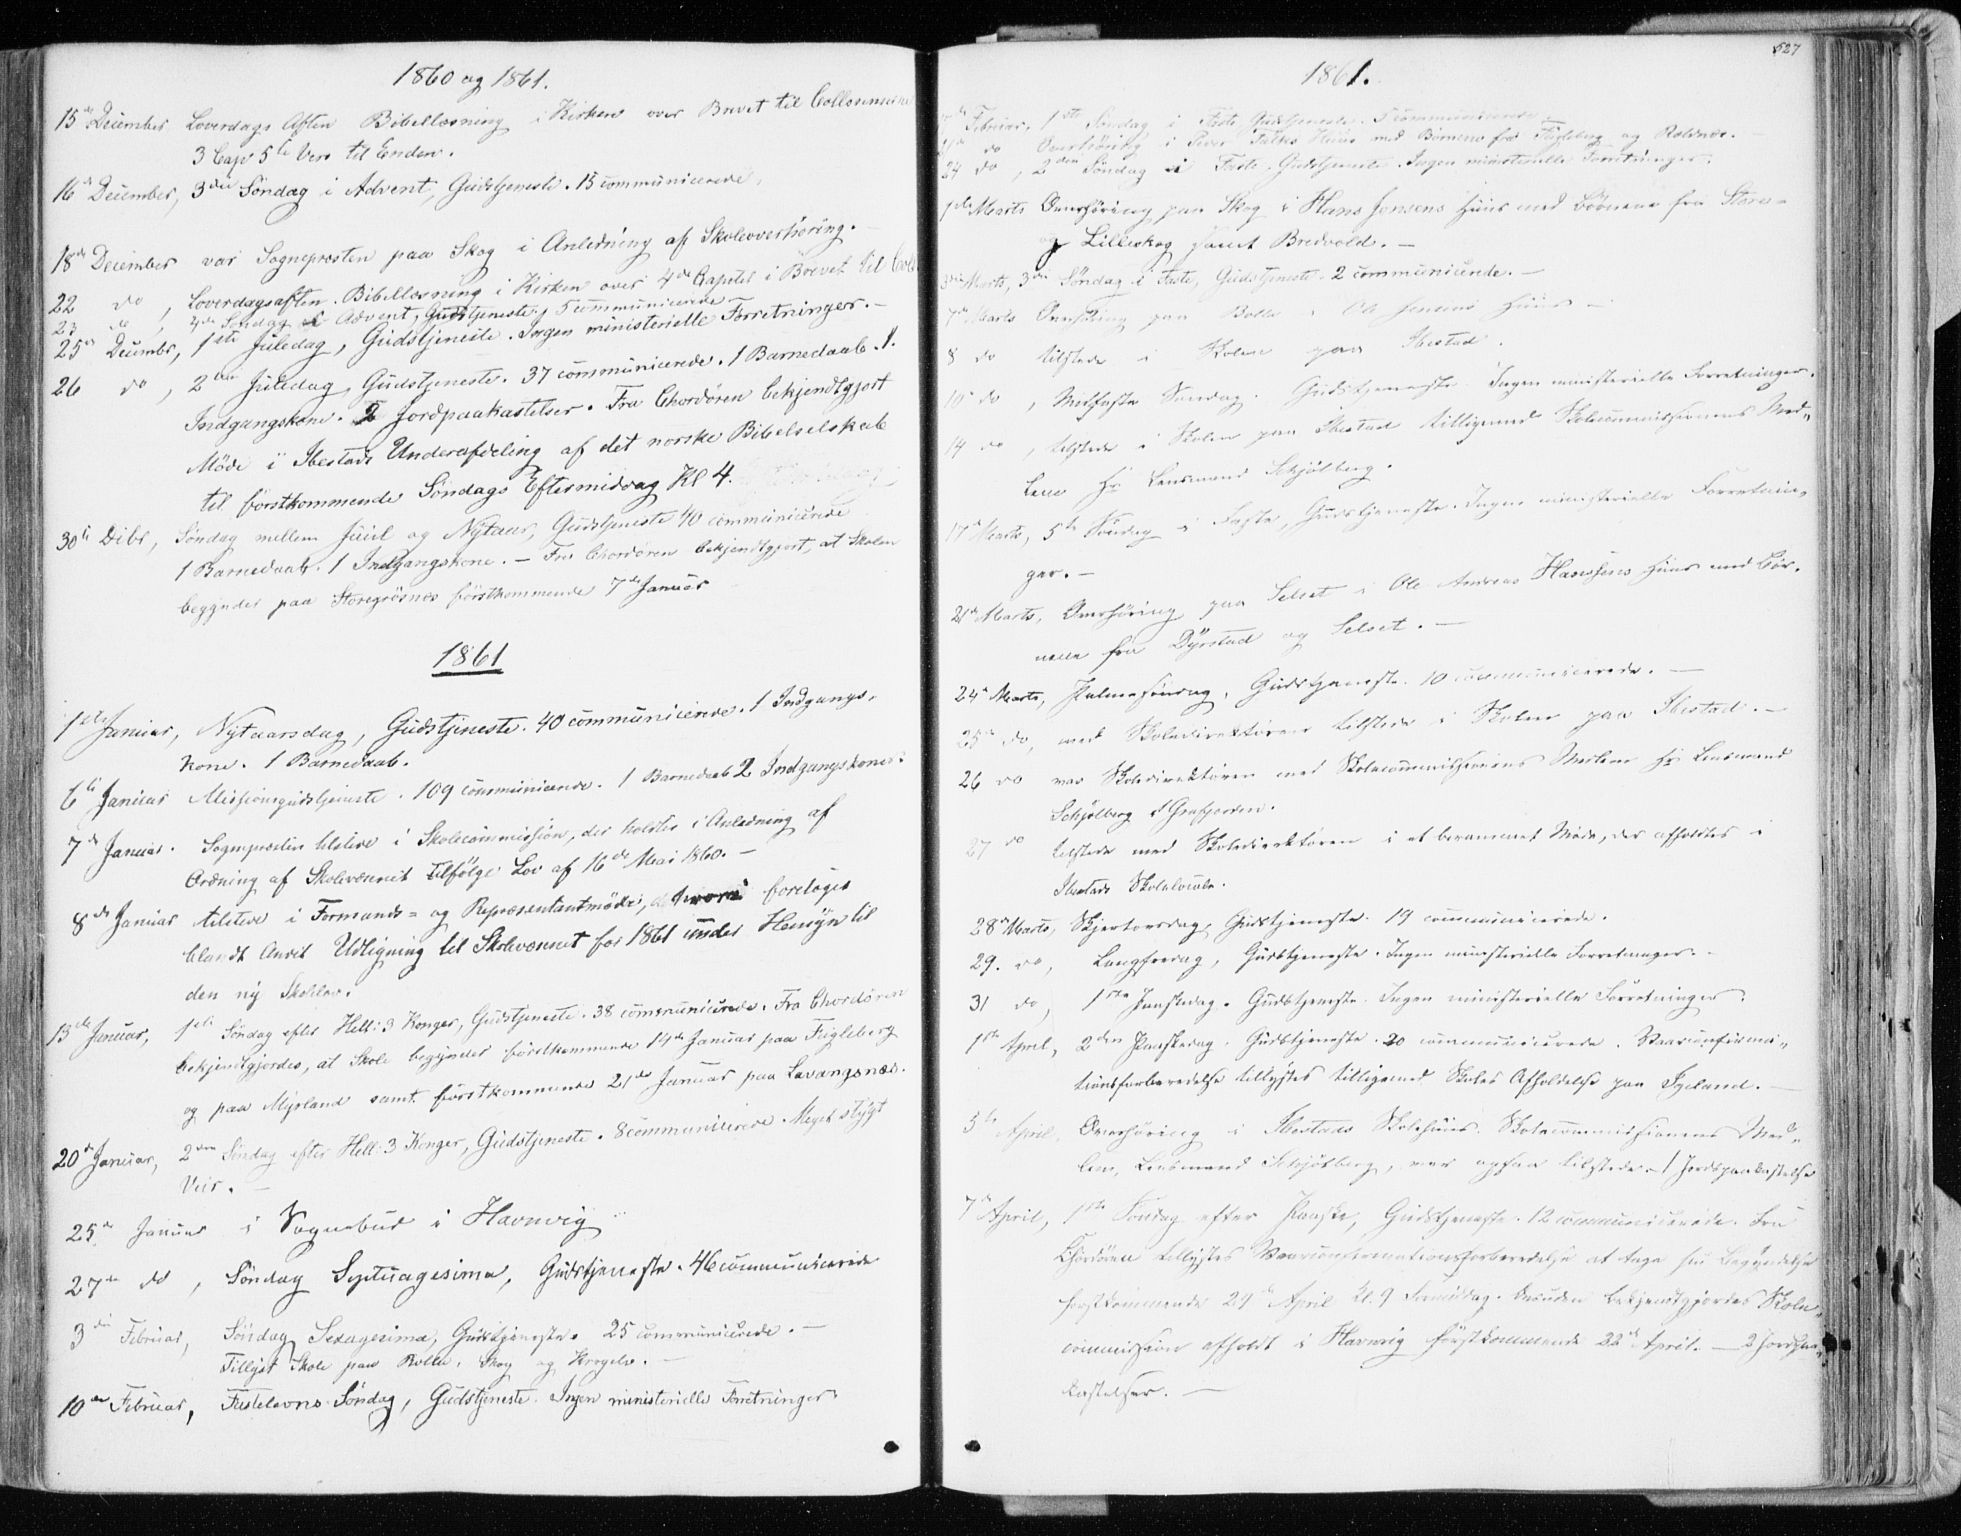 1860 og 1861.
15de December Loverdags Aften Bibellæsning i Kirken over Brevet til Collosenserne
3 Cap 5te Vers til Enden.
16de December, 3die Søndag i Advent, Gudstjeneste. 15 communicerede.
18de December var Sogneprosten paa Skog i Anledning af Skoleoverhøring.
22 do, Loverdagsaften. Bibellæsning i Kirken over 4de Capitel i Brevet til Col
23 do, 4de Søndag i Advent, Gudstjeneste, 5 communicerede
25de Decembr, 1ste Juledag, Gudstjeneste. Ingen ministerielle Forretninger.-
26 do, 2den Juledag Gudstjeneste. 37 communicerede. 1 Barnedaab. 1.
Indgangskone. 2 Jordpaakastelser. Fra Chordøren bekjendtgjort
Møde i Ibestads Underafdeling af det norske Bibelselskab
til førstkommende Søndags Eftermiddag Kl 4.
30te Dcbr, Søndag mellem Juul og Nytaar, Gudstjeneste 40 communicerede
1 Barnedaab. 1 Indgangskone. - Fra Chordøren bekjendtgjort, at Skolen
begynder paa Storegrøsnes førstkommende 7de Januar
1861
1ste Januar, Nytaarsdag, Gudstjeneste. 40 communicerede. 1 Indgangs-
kone. 1 Barnedaab.
6te Januar Missionsgudstjeneste. 109 communicerede. 1 Barnedaab 2 Indgangskoner.
7de Januar. Sogneprosten tilstede i Skolecommission, der holdtes i Anledning af
Ordning af Skolevæsenet tilfølge Lov af 16de Mai 1860.-
8de Januar tilstede i Formands= og Repræsentantmøde, hvori foretoges
blandt Andet Udligning til Skolevæsenet for 1861 under Hensyn til
den ny Skolelov.
13de Januar, 1ste Søndag efter Hell: 3 Konger, Gudstjeneste. 38 communicerede. Fra Chordøren
bekjendtgjordes, at Skole begynder førstkommende 14de Januar paa Fugleberg
og paa Myrland samt førstkommende 21de Januar paa Lavangsnæs.
20de Januar, 2den Søndag efter Hell: 3 Konger, Gudstjeneste. 8 communicerede. Meget stygt
Veir. -
25de Januar i Sognebud i Havnvig
27de do, Søndag Septuagesima, Gudstjeneste. 46 communicerede
3die Februar, Søndag Sexagesima, Gudstjeneste. 25 communicerede. -
Tillyst Skole paa Rolla, Skog og Krogelv. -
10de Februar, Fastelavns Søndag, Gudstjeneste. Ingen ministerielle Forretninger
527
1861.
Februar, 1ste Søndag i Faste Gudstjeneste. 5 communicerede.
do Overhøring i Peder Falks Huus med Børnene fra Fugleberg og Roldnæs. -
24 do, 2den Søndag i Faste. Gudstjeneste. Ingen ministerielle Forretninger.
1ste Marts Overhøring paa Skog i Hans Jensens Huus med Børnene fra Store-
og Lilleskog samt Bredvold. -
3die Marts, 3die Søndag i Faste, Gudstjeneste. 2 communicerede. -
7de Marts Overhøring paa Rolla i Ole Jensens Huus -
8 do tilstede i Skolen paa Ibestad.
10de do, Midfaste Søndag. Gudstjeneste. Ingen ministerielle Forretninger.
14 do, tilstede i Skolen paa Ibestad tilligemed Skolecommissionens Med-
lem Hr Lensmand Schjølberg.
17de Marts, 5te Søndag i Faste, Gudstjeneste. Ingen ministerielle Forretnin-
ger. -
21de Marts, Overhøring paa Selset i Ole Andreas Hanssens Huus med Bør-
nene fra Dyrstad og Selset. -
24de Marts, Palmesøndag, Gudstjeneste. 10 communicerede. -
25de do, med Skoledirektøren tilstede i Skolen paa Ibestad. -
26 do var Skoledirektøren med Skolecommissionens Medlem Hr Lensmand
Schjølberg i Gratfjorden.
27 do tilstede med Skoledirektøren i et berammet Møde, der afholdtes i
Ibestads Skolelocale.
28de Marts, Skjertorsdag, Gudstjeneste. 19 communicerede.
29. do, Langfredag, Gudstjeneste. Ingen ministerielle Forretninger. -
31 do, 1ste Paaskedag. Gudstjeneste. Ingen ministerielle Forretninger.
1ste April, 2den Paaskedag. Gudstjeneste. 20 communicerede. Vaarconfirma-
tionsforberedelse tillystes tilligemed Skoles Afholdelse paa Igeland. -
5te April, Overhøring i Ibestads Skolehuus. Skolecommissionens Med-
lem, Lensmand Schjølberg, var ogsaa tilstede. - 1 Jordpaakastelse
7de April, 1ste Søndag efter Paaske, Gudstjeneste. 12 communicerede. Fra
Chordøren tillystes Vaarconfirmationsforberedelse at tage sin Begyndelse
førstkommende 29de April Kl. 9 Formiddag. Desuden bekjendtgjordes Skole-
commission afholdt i Havnvig førstkommende 22de April. - 2 Jordpaa-
kastelser. -